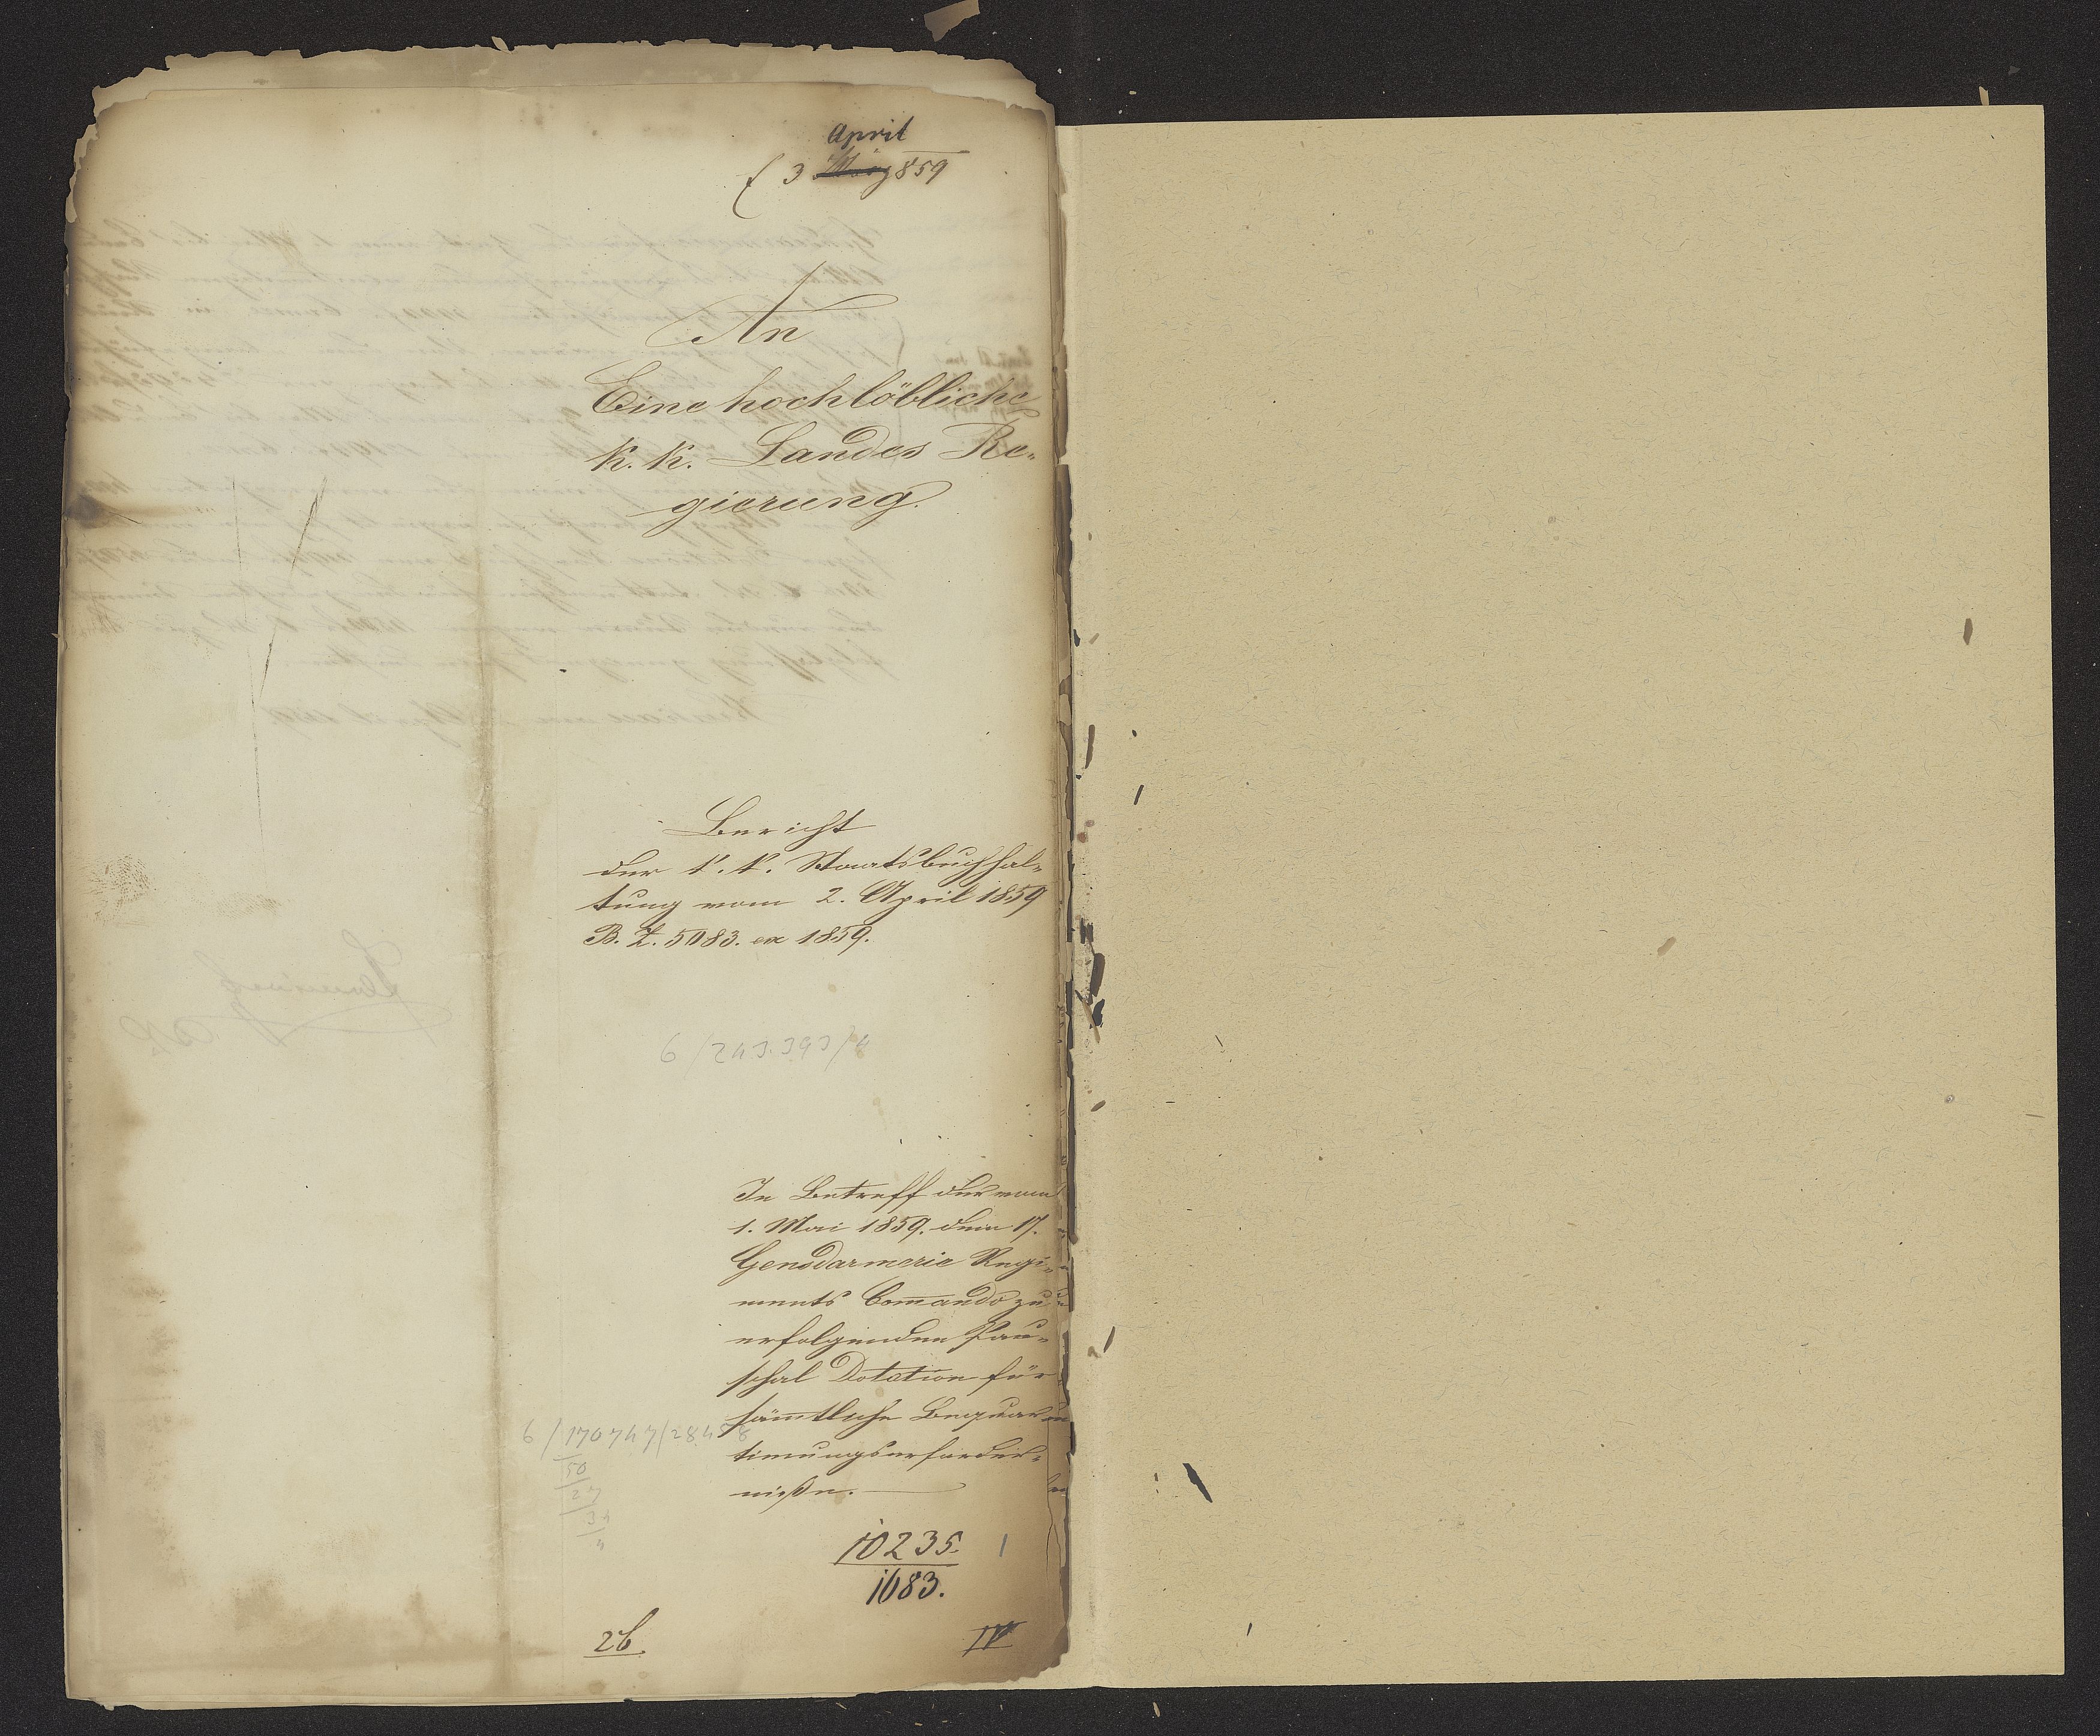 April
3 März 859
An
Eine hochlöbliche
k. k. Landes Re-
gierung.
Bericht
der k. k. Staatsbuchhal-
tung vom 2. April 1859
B. Z. 5083. ex 1859.
6/243.393/4
In Betreff der vom
1. Mai 1859. dem 17.
Gensdarmerie Regi-
ments Commando zu
erfolgenden Pau-
schal Dotation für
sämmtliche Bequar-
tierungserforder-
niße.
6/170747/28458
50
27
34
4
10235. 1
1083.
26. IV